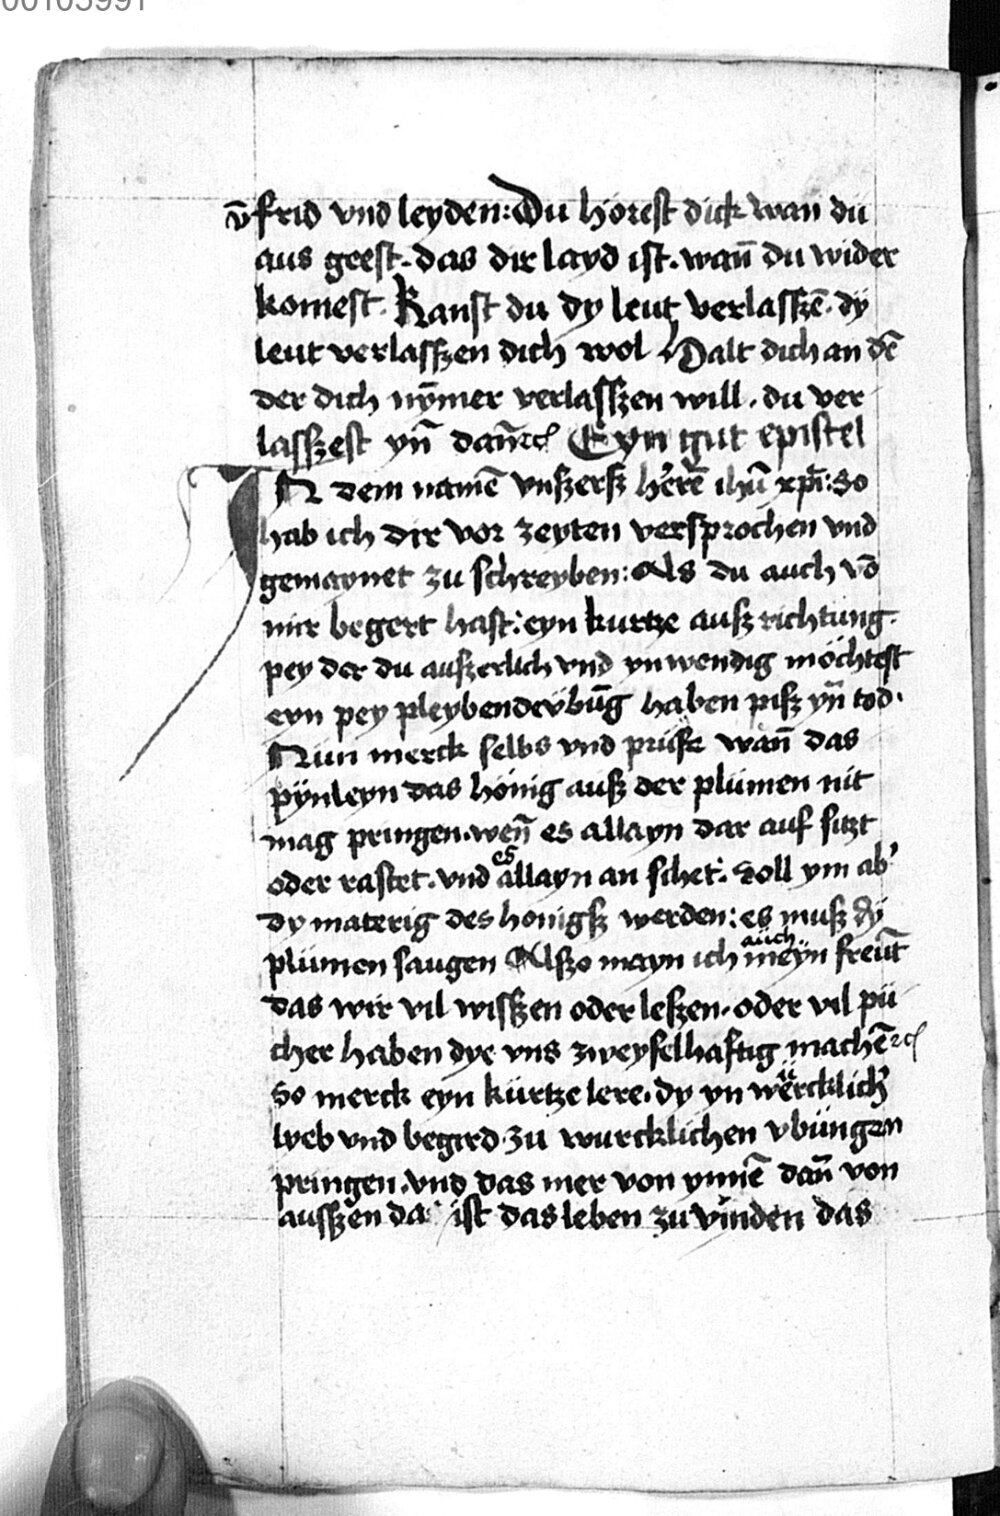 00103991
v̄frid vnd leyden: Du hörest dick wan du
aus geest. das dir layd ist. wan̄ du wider
komest. Kanst du dy leut verlasszē. dÿ
leut verlasszen dich wol Halt dich an dē
der dich nȳmer verlasszen will. du ver
lasszest yn̄ dan̄ ꝛc Eyn gut epistel
IN dem namē vnszersz herrē ihū xp̄i: So
hab ich dir vor zeyten versprochen vnd
gemaynet zu schreyben: Als du auch vō
mir begert hast: eyn kurtze ausz richtung.
pey der du auszerlich vnd ynwendig möchtest
eyn pey pleybende vbūg haben pisz yn̄ tod.
Nun merck selbs vnd prüfe wan̄ das
pÿnleyn das hönig ausz der plümen nit
mag pringen. wen̄ es allayn dar auf sitzt
oder rastet. vnd es allayn an schet. Soll ym ab'
dy materig des honigsz werden: es musz dÿ
plümen saugen Alszo mayn ich auch meÿn freūt
das wir vil wisszen oder leszen. oder vil pü
cher haben dye vns zweyfelhaftig machē ꝛc
So merck eyn kürtze lere. dy yn wercklich'
lyeb vnd begird zu wurcklichen vbüngen
pringen. vnd das mer von ynnē dan̄ von
ausszen da ist das leben zu vinden das